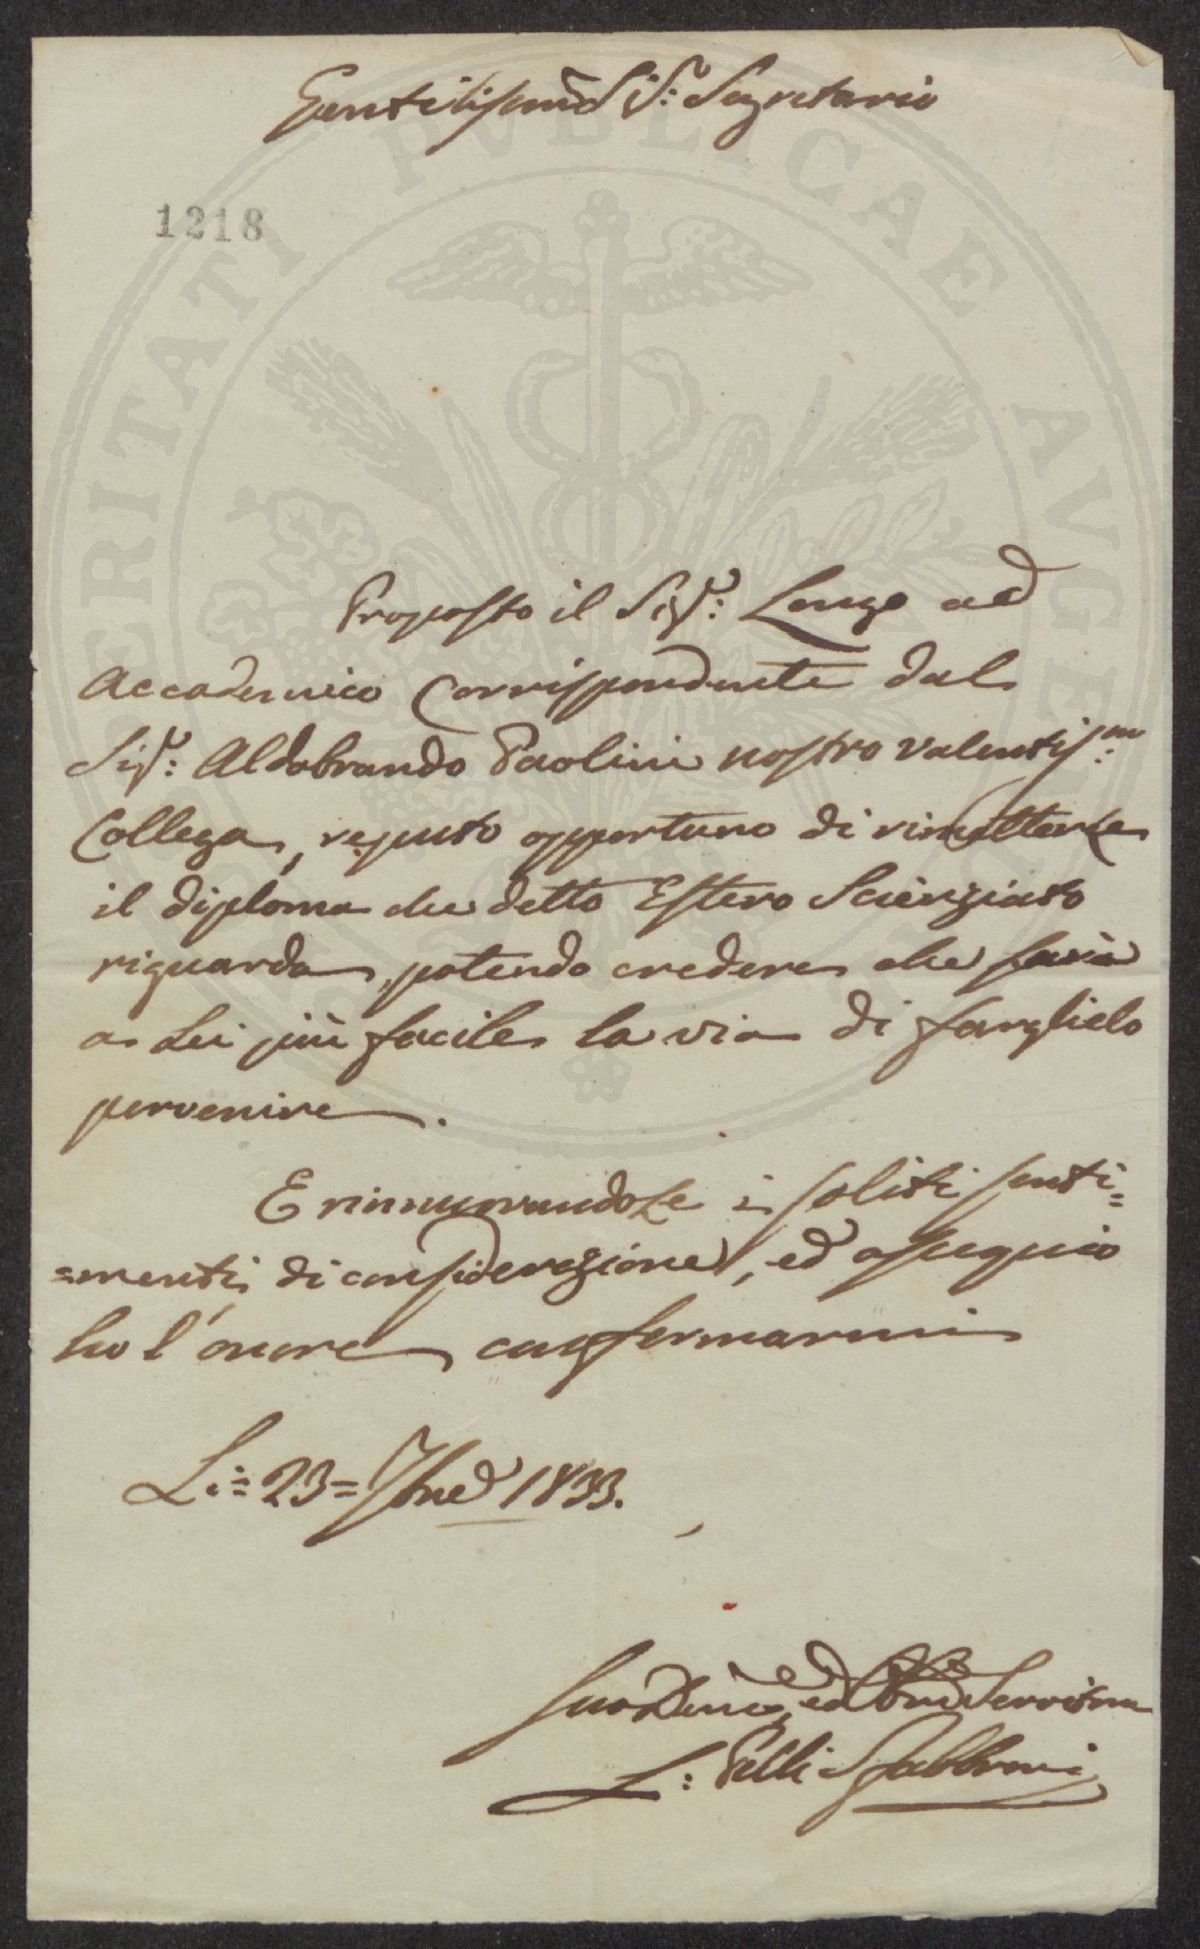 Gentilissimo Sig.r Segretario
1218
Proposto il Sig.r: Longo ad
Accademico Corrispondente dal
Sig.r: Aldobrando Paolini nostro valentiss.mo
Collega, reputo opportuno di rimetterle
il diploma che detto Estero Scienziato
riguarda, potendo credere che sarà
a Lei più facile la via di farglielo
pervenire.
E rinnuovandole i soliti senti=
=menti di considerazione, ed ossequio
ho l'onore confermarmi
Li= 23= 7bre 1833.
Suo Dev.mo, ed Obb.mo Servitore
L: Pelli Fabbroni
PVBLICAE AVGEN